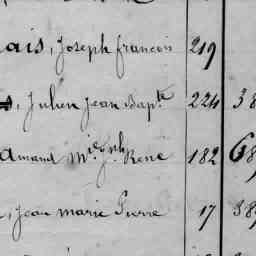 ais, Joseph francois 219
, Julien Jean Bapte 224 38
Amand Mie Jph René 182 68
, Jean marie Pierre 17 38